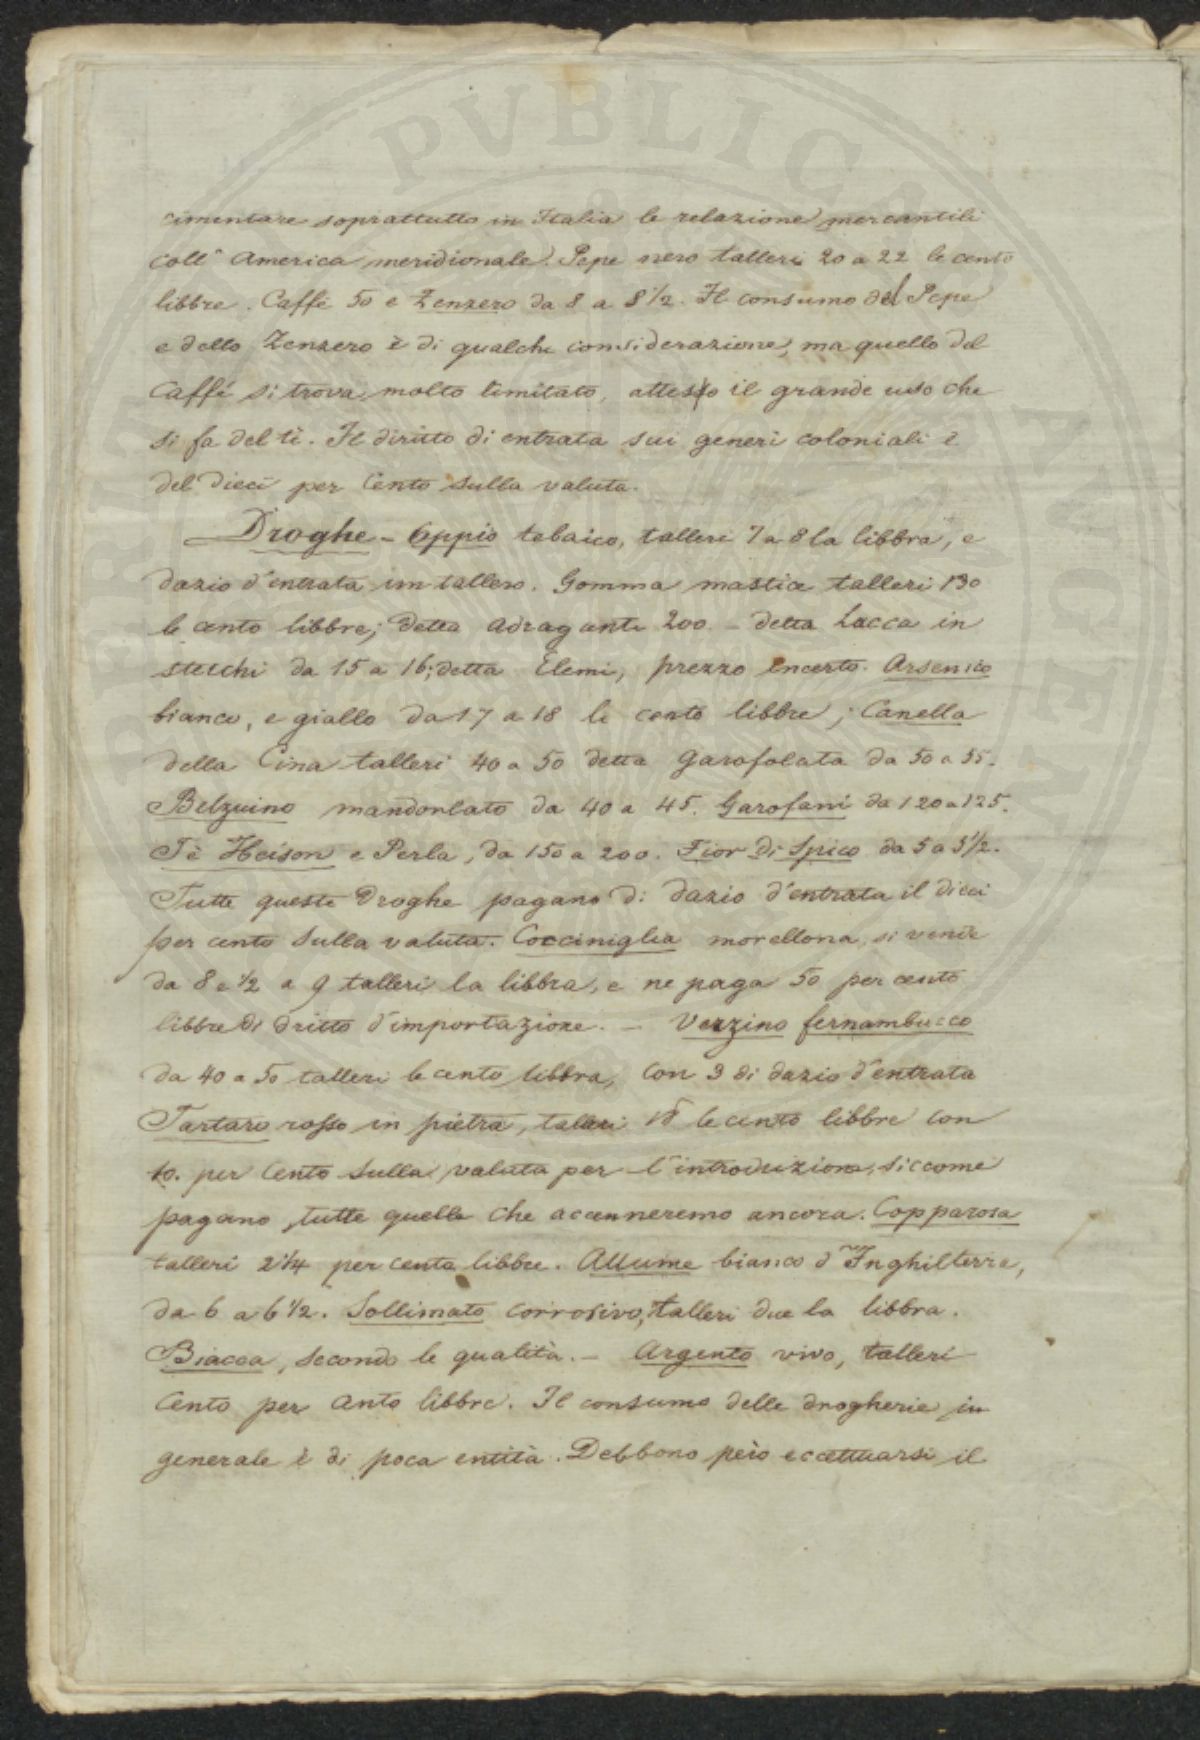 cimentare soprattutto in Italia le relazione mercantili
coll' America meridionale. Pepe nero talleri 20 a 22 le cento
libbre. Caffè 50 e Zenzero da 8 a 8 1/2. Il consumo del Pepe
e dello Zenzero è di qualche considerazione, ma quello del
Caffé si trova molto limitato, atteso il grande uso che
si fa del tè. Il diritto di entrata sui generi coloniali è
del Dieci per Cento sulla valuta.
Droghe - Oppio tebaico, talleri 7 a 8 la libbra, e
dazio d'entrata un tallero. Gomma mastice talleri 130
le cento libbre; detta adragante 200. - detta Lacca in
stecchi da 15 a 16; detta Elemi, prezzo incerto. Arsenico
bianco, e giallo da 17 a 18 le cento libbre; Canella
della Cina talleri 40 a 50 detta Garofolata da 50 a 55.
Belzuino mandorlato da 40 a 45. Garofani da 120 a 125.
Tè Heison e Perla, da 150 a 200. Fior di Spico da 5 a 5 1/2.
Tutte queste Droghe pagano di dazio d'entrata il dieci
per cento sulla valuta. Cocciniglia morellona, si vende
da 8 e 1/2 a 9 talleri la libbra, e ne paga 50 per cento
libbre di dritto d'importazione. - Verzino fernambucco
da 40 a 50 talleri le cento libbra, con 3 di dazio d'entrata
Tartaro rosso in pietra, talari le cento libbre con
10. per Cento sulla valuta per l'introduzione, siccome
pagano tutte quelle che accenneremo ancora. Copparosa
talleri 2 1/4 per cento libbre. Allume bianco d'Inghilterra,
da 6 a 6 1/2. Sollimato corrosivo, talleri due la libbra.
Biacca, secondo le qualità. - Argento vivo, talleri
Cento per cento libbre. Il consumo delle drogherie in
generale è di poca entità. Debbono però eccettuarsi il
PVBLIC